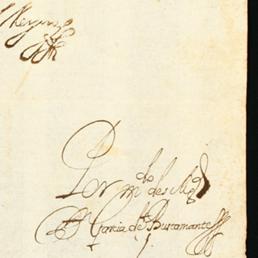 Por mdo de su Mgd
Dn Garcia de Bustamante